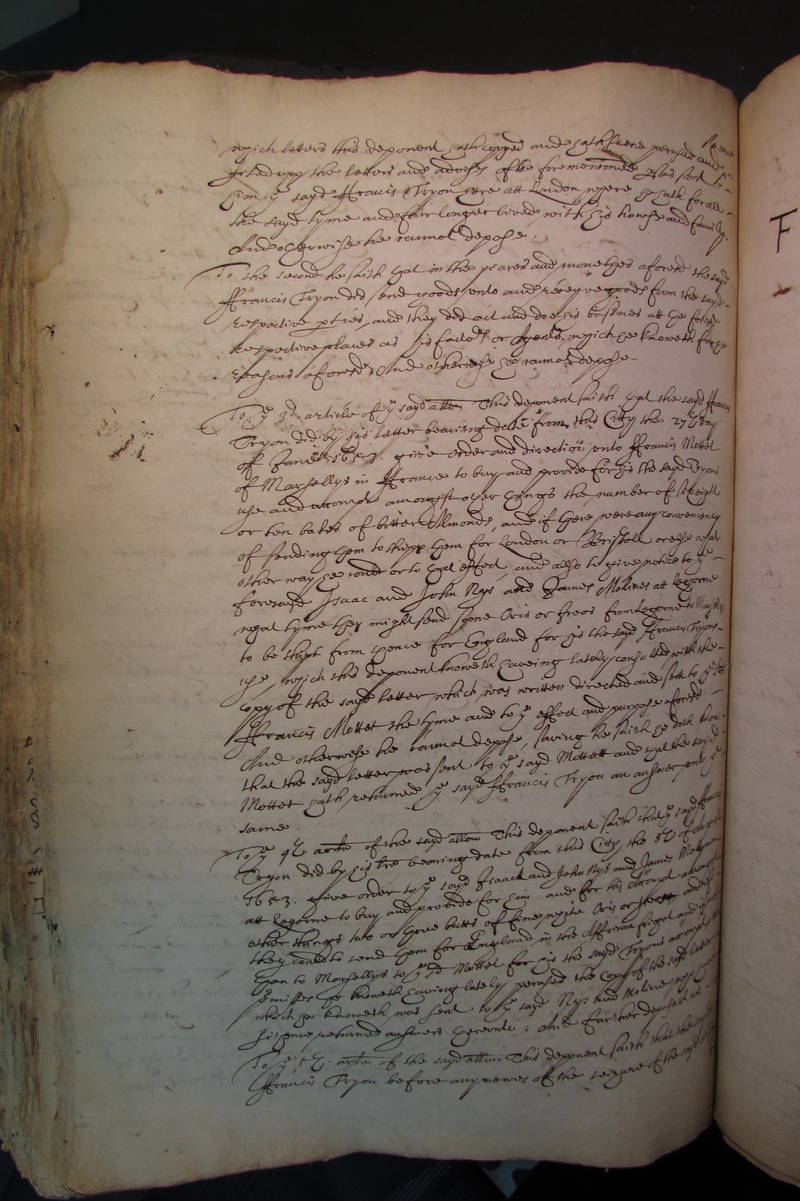 which letters this deponent hath copyed and hath seene perused and
upon the letters and advises of the forementioned sent to
him the sayd Francis Tryon here att London where he hath for all
the sayd tyme and fair longer lived with his howse and family
And otherwise he cannot depose.
To the second he saith that in the yeares and monethes aforesd the sayd
Ffrancis Tryon did send goods unto and receyve goods from the sayd
respective pties and they did act and doe his busines att the foresd
respective places as his factors or Agents, which he knoweth for the
reasons aforesd And otherwise he cannot depose
To ye 3d article of ye sayd allon This deponent saith that the sayd Ffrancis
Tryon did by his letter bearing date from this Citty the 27th day
of 1653. give order and direction unto Ffrancis Mottet
of Marsellys in Ffrance to buy and provide for his the sayd Tryons
use and accompt amongst other things the number of eight
or ten bales of bitter Almonds, and if there were any conveniency
of sending them to shipp them for London or Bristoll or else what
other way he could or to that effect, and allso to give notice to ye
foresaid Isaac and John Nys and James Molines att Legorne
what tyme they might send some Oris or from Legorne to Marsellys
to be shipt from thence for England for his the sayd Ffrancis Tryons
use, which this deponent knoweth haveing lately consulted with the
copy of the sayd letter which was written directed and sent to ye sd
Ffrancis Mottet the tyme and to ye effect and purpose aforesd
And otherwise he cannot depose, saving he saith he doth know
that the sayd letter was sent to ye sayd Mottett and that the sayd
Mottet hath returned ye sayd Ffrancis Tryon an answer unto ye
same.
To ye 4th arte of the sayd allon This deponent saith that ye sayd Ffrancis
Tryon did by his lre bearing date from this City the 8th of
1653. give order to ye sayd Isaack and John Nys and James Molines
att Legorne to buy and provide for him and for his owne accompt amongst
other things two or three butts of fine white Oris or and if
they could to send them for England in the and if not
them to Marsellys to ye sd Mottet for his the sayd Tryons accompt
he knoweth haveing lately perused the Copy of the sayd letter
which he knoweth was sent to ye sayd Nys and Moline who have
since returned answers thereunto: And further deposeth not.
To ye 5th. arte of the sayd allon This deponent saith that the sayd
Ffrancis Tryon before any newes of the seizure of the sayd
F